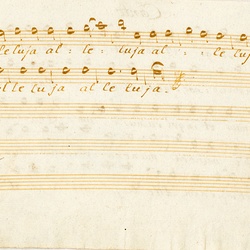 leluja al : le : luja al : : le
alleluja alleluja.